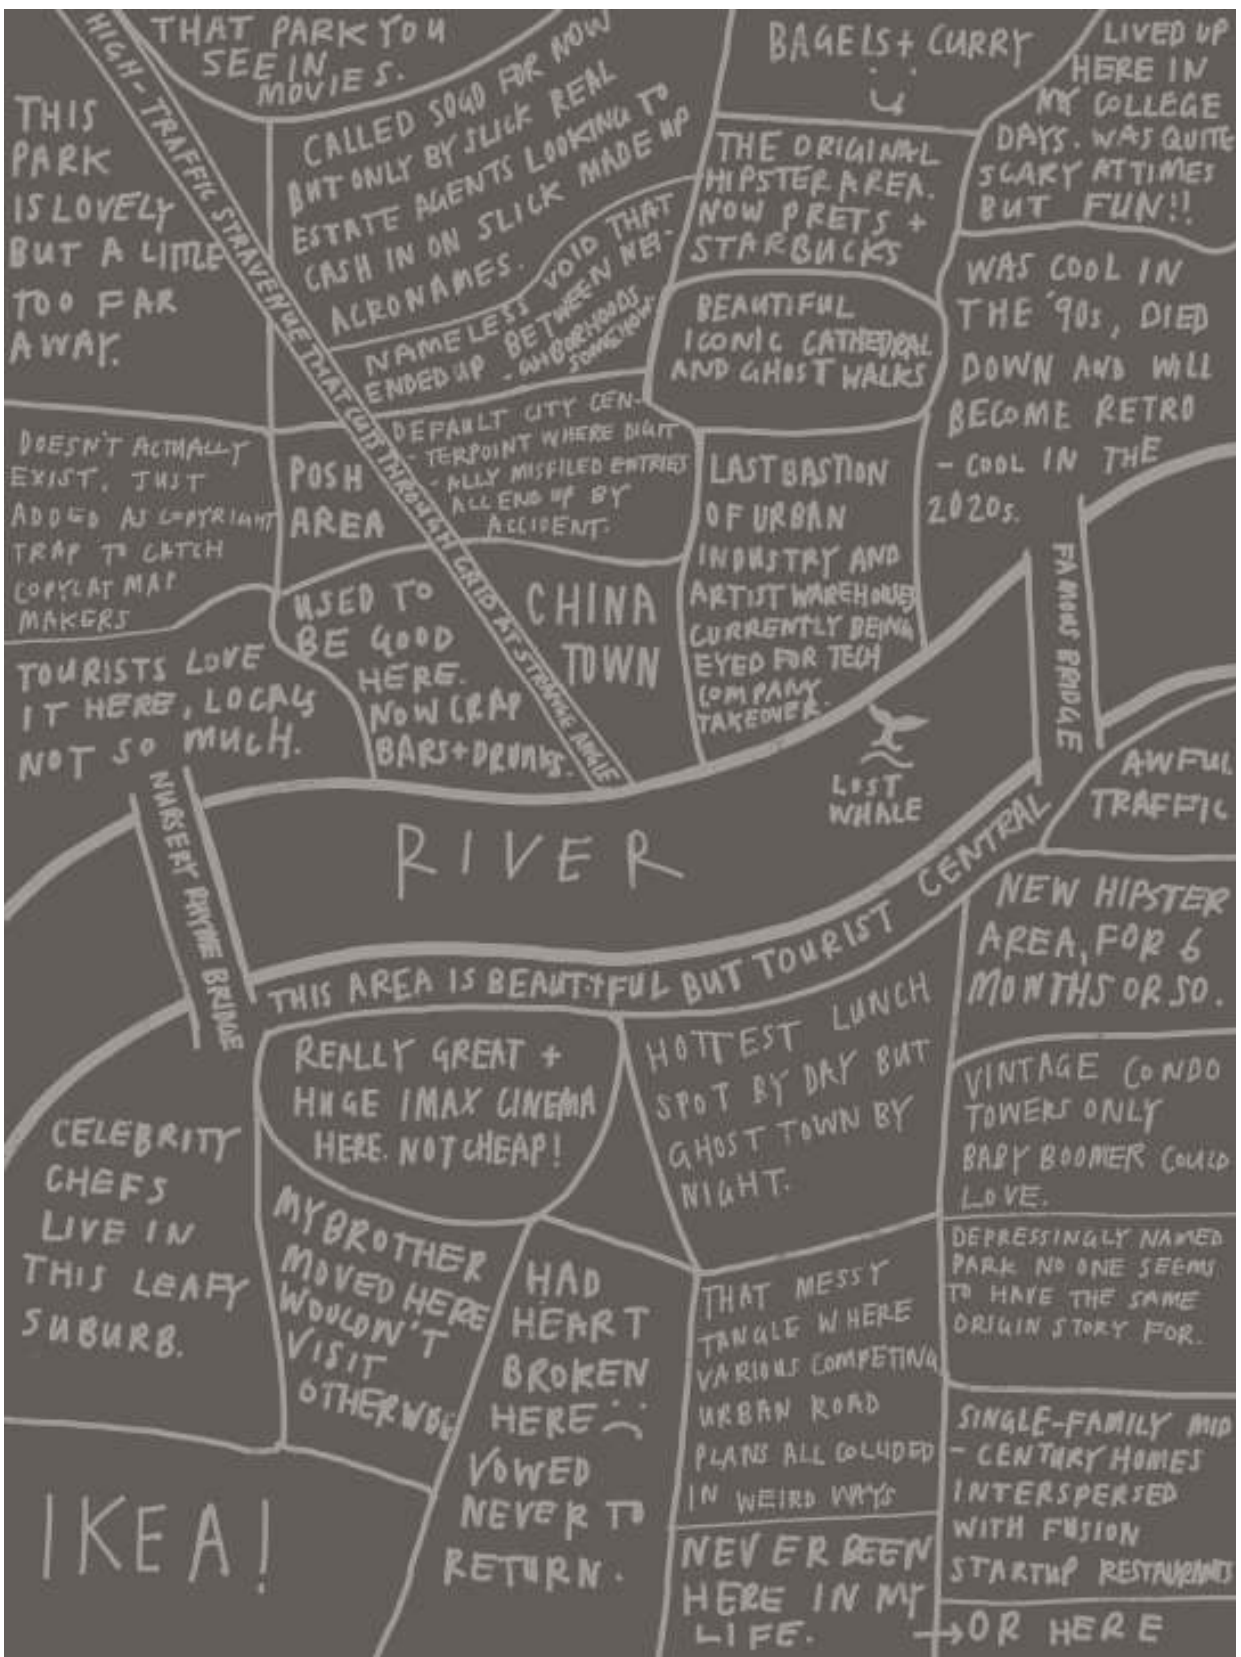 THAT PARK YOU
SEE IN
MOVIES.
HIGH-TRAFFIC STRAVENUE THAT CUTS THROUGH GRID AT STRANGE ANGLE
THIS
PARK
IS LOVELY
BUT A LITTLE
TOO FAR
AWAY.
CALLED SOGO FOR NOW
BUT ONLY BY SLICK REAL
ESTATE AGENTS LOOKING TO
CASH IN ON SLICK MADE UP
ACRONAMES.
NAMELESS VOID THAT
ENDED UP BETWEEN NEI-
-GHBORHOODS
SOMEHOW.
BAGELS + CURRY
LIVED UP
HERE IN
MY COLLEGE
DAYS. WAS QUITE
SCARY AT TIMES
BUT FUN!!
THE ORIGINAL
HIPSTER AREA.
NOW PRETS +
STARBUCKS
BEAUTIFUL
ICONIC CATHEDRAL
AND GHOST WALKS
WAS COOL IN
THE '90s, DIED
DOWN AND WILL
BECOME RETRO
- COOL IN THE
2020s.
DOESN'T ACTUALLY
EXIST. JUST
ADDED AS COPYRIGHT
TRAP TO CATCH
COPYCAT MAP
MAKERS
POSH
AREA
DEFAULT CITY CEN-
- TERPOINT WHERE DIGIT
- ALLY MISFILED ENTRIES
ALL END UP BY
ACCIDENT.
LAST BASTION
OF URBAN
INDUSTRY AND
ARTIST WAREHOUSES
CURRENTLY BEING
EYED FOR TECH
COMPANY
TAKEOVER.
TOURISTS LOVE
IT HERE, LOCALS
NOT SO MUCH.
USED TO
BE GOOD
HERE.
NOW CRAP
BARS + DRUNKS.
CHINA
TOWN
FAMOUS BRIDGE
LOST
WHALE
AWFUL
TRAFFIC
NURSERY RHYME BRIDGE
RIVER
THIS AREA IS BEAUTIFUL BUT TOURIST CENTRAL
NEW HIPSTER
AREA, FOR 6
MONTHS OR SO.
REALLY GREAT +
HUGE IMAX CINEMA
HERE. NOT CHEAP!
HOTTEST LUNCH
SPOT BY DAY BUT
GHOST TOWN BY
NIGHT.
VINTAGE CONDO
TOWERS ONLY
BABY BOOMER COULD
LOVE.
CELEBRITY
CHEFS
LIVE IN
THIS LEAFY
SUBURB.
MY BROTHER
MOVED HERE
WOULDN'T
VISIT
OTHERWISE
HAD
HEART
BROKEN
HERE
VOWED
NEVER TO
RETURN.
THAT MESSY
TANGLE WHERE
VARIOUS COMPETING
URBAN ROAD
PLANS ALL COLLIDED
IN WEIRD WAYS
DEPRESSINGLY NAMED
PARK NO ONE SEEMS
TO HAVE THE SAME
ORIGIN STORY FOR.
SINGLE-FAMILY MID
- CENTURY HOMES
INTERSPERSED
WITH FUSION
STARTUP RESTAURANTS
IKEA!
NEVER BEEN
HERE IN MY
LIFE.
→ OR HERE